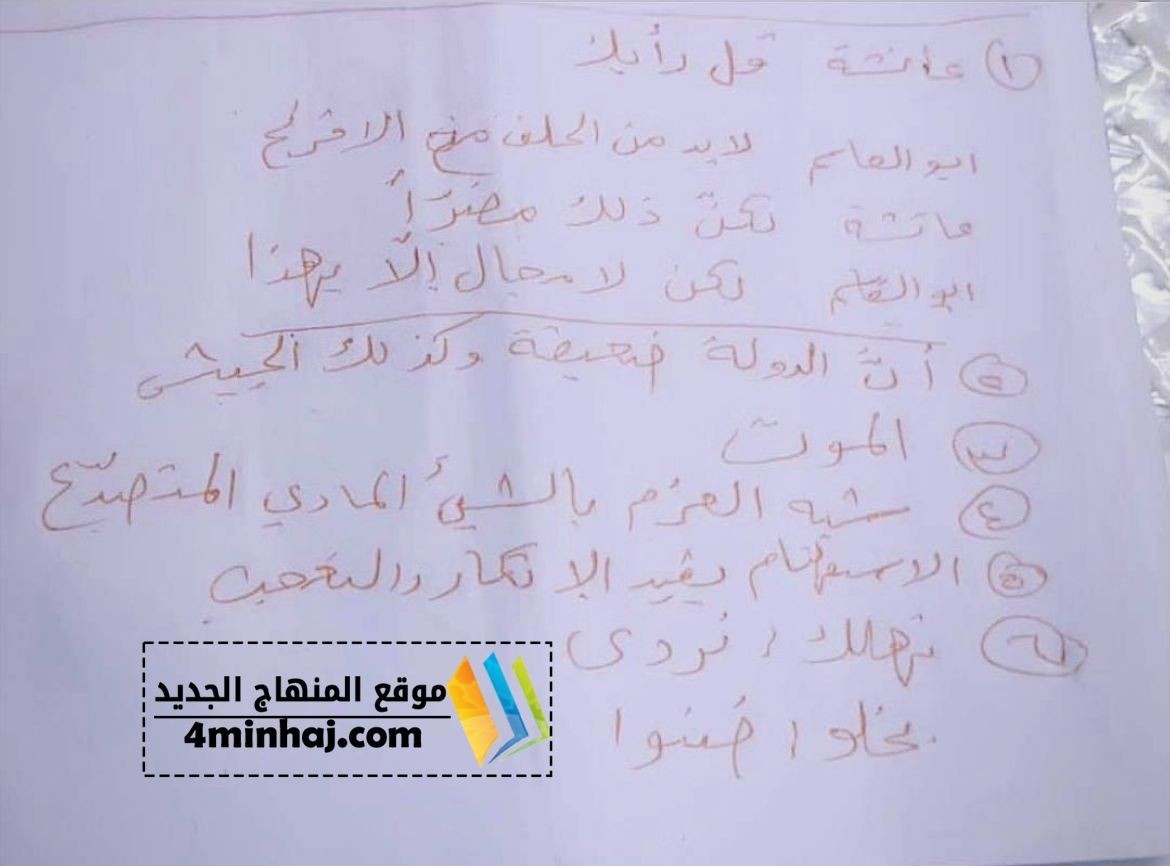 ١ عائشة قل رأيك
ابو القاسم لابد من الحلف مع الافرنج
عائشة لكنّ ذلك مضرّاً
ابو القاسم لكن لا مجال إلّا بهذا
٢ أنّ الدولة ضعيفة وكذلك الجيش
٣ الموت
٤ شبه العزم بالشيئ المادي المتصدّع
٥ الاستفهام يفيد الإنكار والتعجب
٦ تهلك / تردى
بخلوا / ضنوا
موقع المنهاج الجديد
4minhaj.com